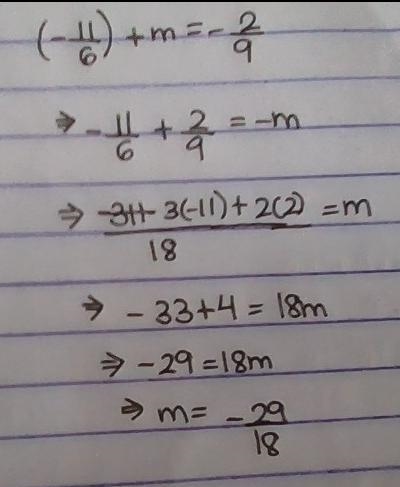 (-11/6) + m = -2/9
⇒ -11/6 + 2/9 = -m
⇒ 3(-11) + 2(2) / 18 = m
⇒ -33+4 = 18m
⇒ -29 = 18m
⇒ m = -29/18